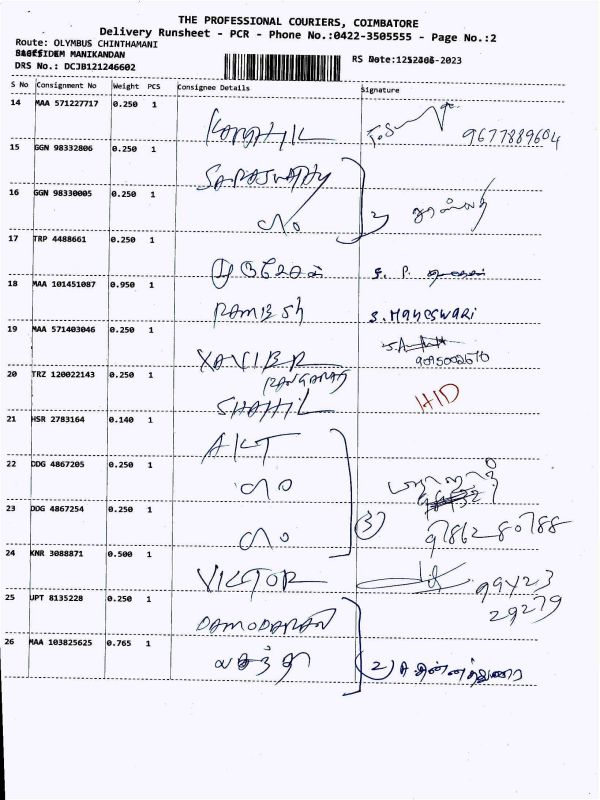 THE PROFESSIONAL COURIERS, COIMBATORE
Delivery Runsheet - PCR - Phone No.:0422-3505555 - Page No.:2
Route: OLYMBUS CHINTHAMANI
MANIKANDAN
DRS No.: DCJB121246602
RS -2023
S No Consignment No Weight PCS Consignee Details Signature
14 MAA 571227717 0.250 1
KARTHIK 9677889604
15 GGN 98332806 0.250 1
SARASWATHY
16 GGN 98330005 0.250 1
2
17 TRP 4488661 0.250 1
முருகேசன் S. P.
18 MAA 101451087 0.950 1
RAMESH S. MAHESWARI
19 MAA 571403046 0.250 1
XAVIER
RANGARAJ
20 TRZ 120022143 0.250 1
SHAHIL HID
21 HSR 2783164 0.140 1
AKT
22 DDG 4867205 0.250 1
23 DDG 4867254 0.250 1
3 9786280788
24 KNR 3088871 0.500 1
VICTOR 99423
29279
25 UPT 8135228 0.250 1
DAMODARAN
26 MAA 103825625 0.765 1
வசந்தி 2